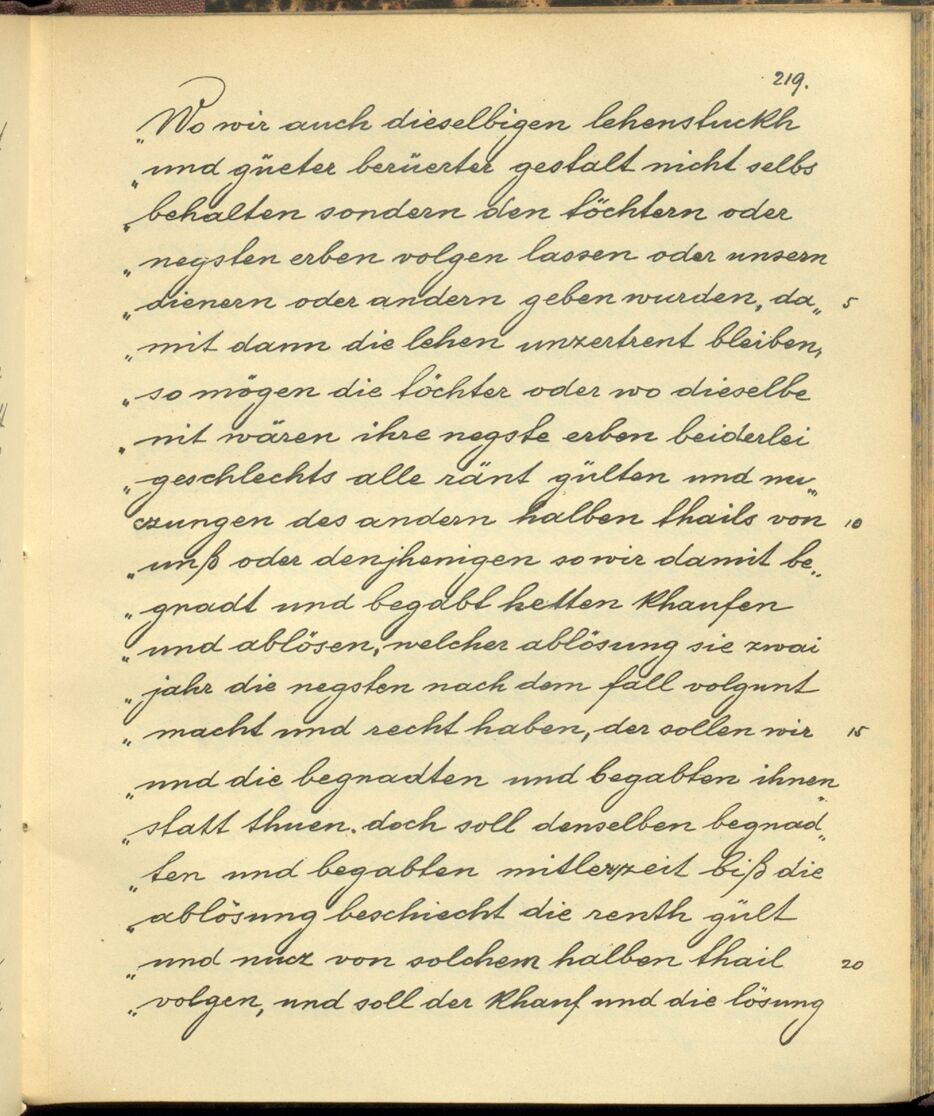 219.
„Wo wir auch dieselbigen lehenstuckh
„und güeter berüerter gestalt nicht selbs
„behalten sondern den töchtern oder
„negsten erben volgen lassen oder unsern
„dienern oder andern geben wurden, da„ 5
„mit dann die lehen unzertrent bleiben,
„so mögen die töchter oder wo dieselbe
„nit wären ihre negste erben beiderlei
„geschlechts alle ränt gülten und nu„
czungen des andern halben thails von 10
„unß oder denjhenigen so wir damit be„
„gnadt und begabt hetten khaufen
„und ablösen, welcher ablösung sie zwai
„jahr die negsten nach dem fall volgunt
„macht und recht haben, der sollen wir 15
„und die begnadten und begabten ihnen
„statt thuen. doch soll denselben begnad„
„ten und begabten mitlerzeit biß die
„ablösung beschiecht die renth gült
„und nucz von solchem halben thail 20
„volgen, und soll der khauf und die lösung